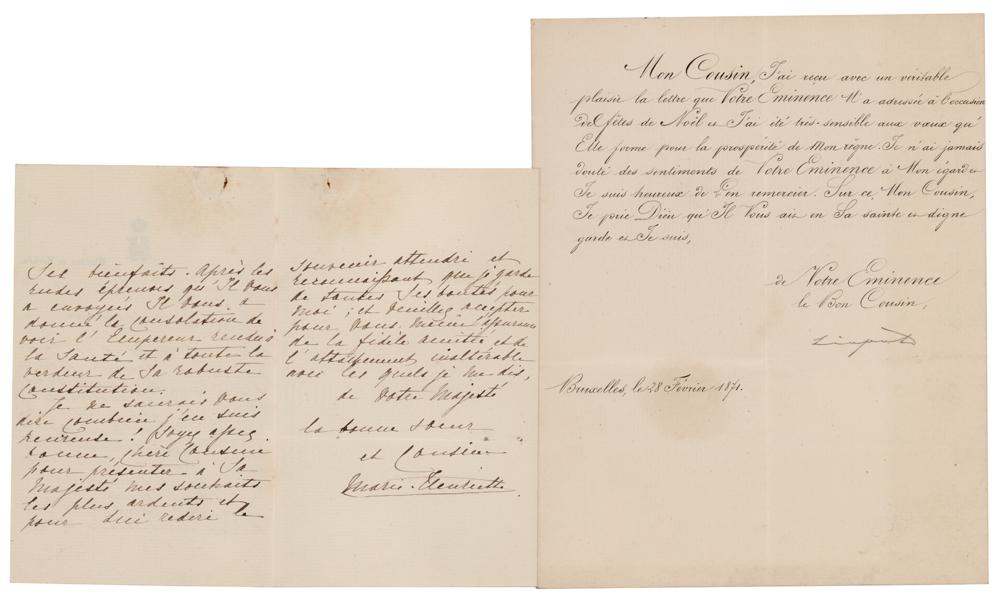 Ses bienfaits. Après les
rudes épreuves qu'Il Vous
a envoyées Il Vous a
donné la consolation de
voir l'Empereur rendu
la Santé et à toute la
verdeur de Sa robuste
Constitution.
Je ne saurais Vous
dire combien j'en suis
heureuse! Soyez assez
bonne, chère Cousine
pour présenter à Sa
Majesté mes souhaits
les plus ardents et
pour Lui redire le
souvenir attendri et
reconnaissant que je garde
de toutes Ses bontés pour
moi; et veuillez accepter
pour Vous même l'assurance
de la fidèle amitié et de
l'attachement inaltérable
avec les quels je me dis,
de Votre Majesté
la bonne Soeur
et Cousine
Marie-Henriette
Mon Cousin, J'ai reçu avec un véritable
plaisir la lettre que Votre Eminence M'a adressée à l'occasion
des fêtes de Noël et J'ai été très-sensible aux vœux qu'
Elle forme pour la prospérité de Mon règne. Je n'ai jamais
douté des sentiments de Votre Eminence à Mon égard et
Je suis heureux de L'en remercier. Sur ce, Mon Cousin,
Je prie Dieu qu'Il Vous ait en Sa sainte et digne
garde et Je suis,
de Votre Eminence
le Bon Cousin,
Léopold
Bruxelles, le 28 Février 1871.